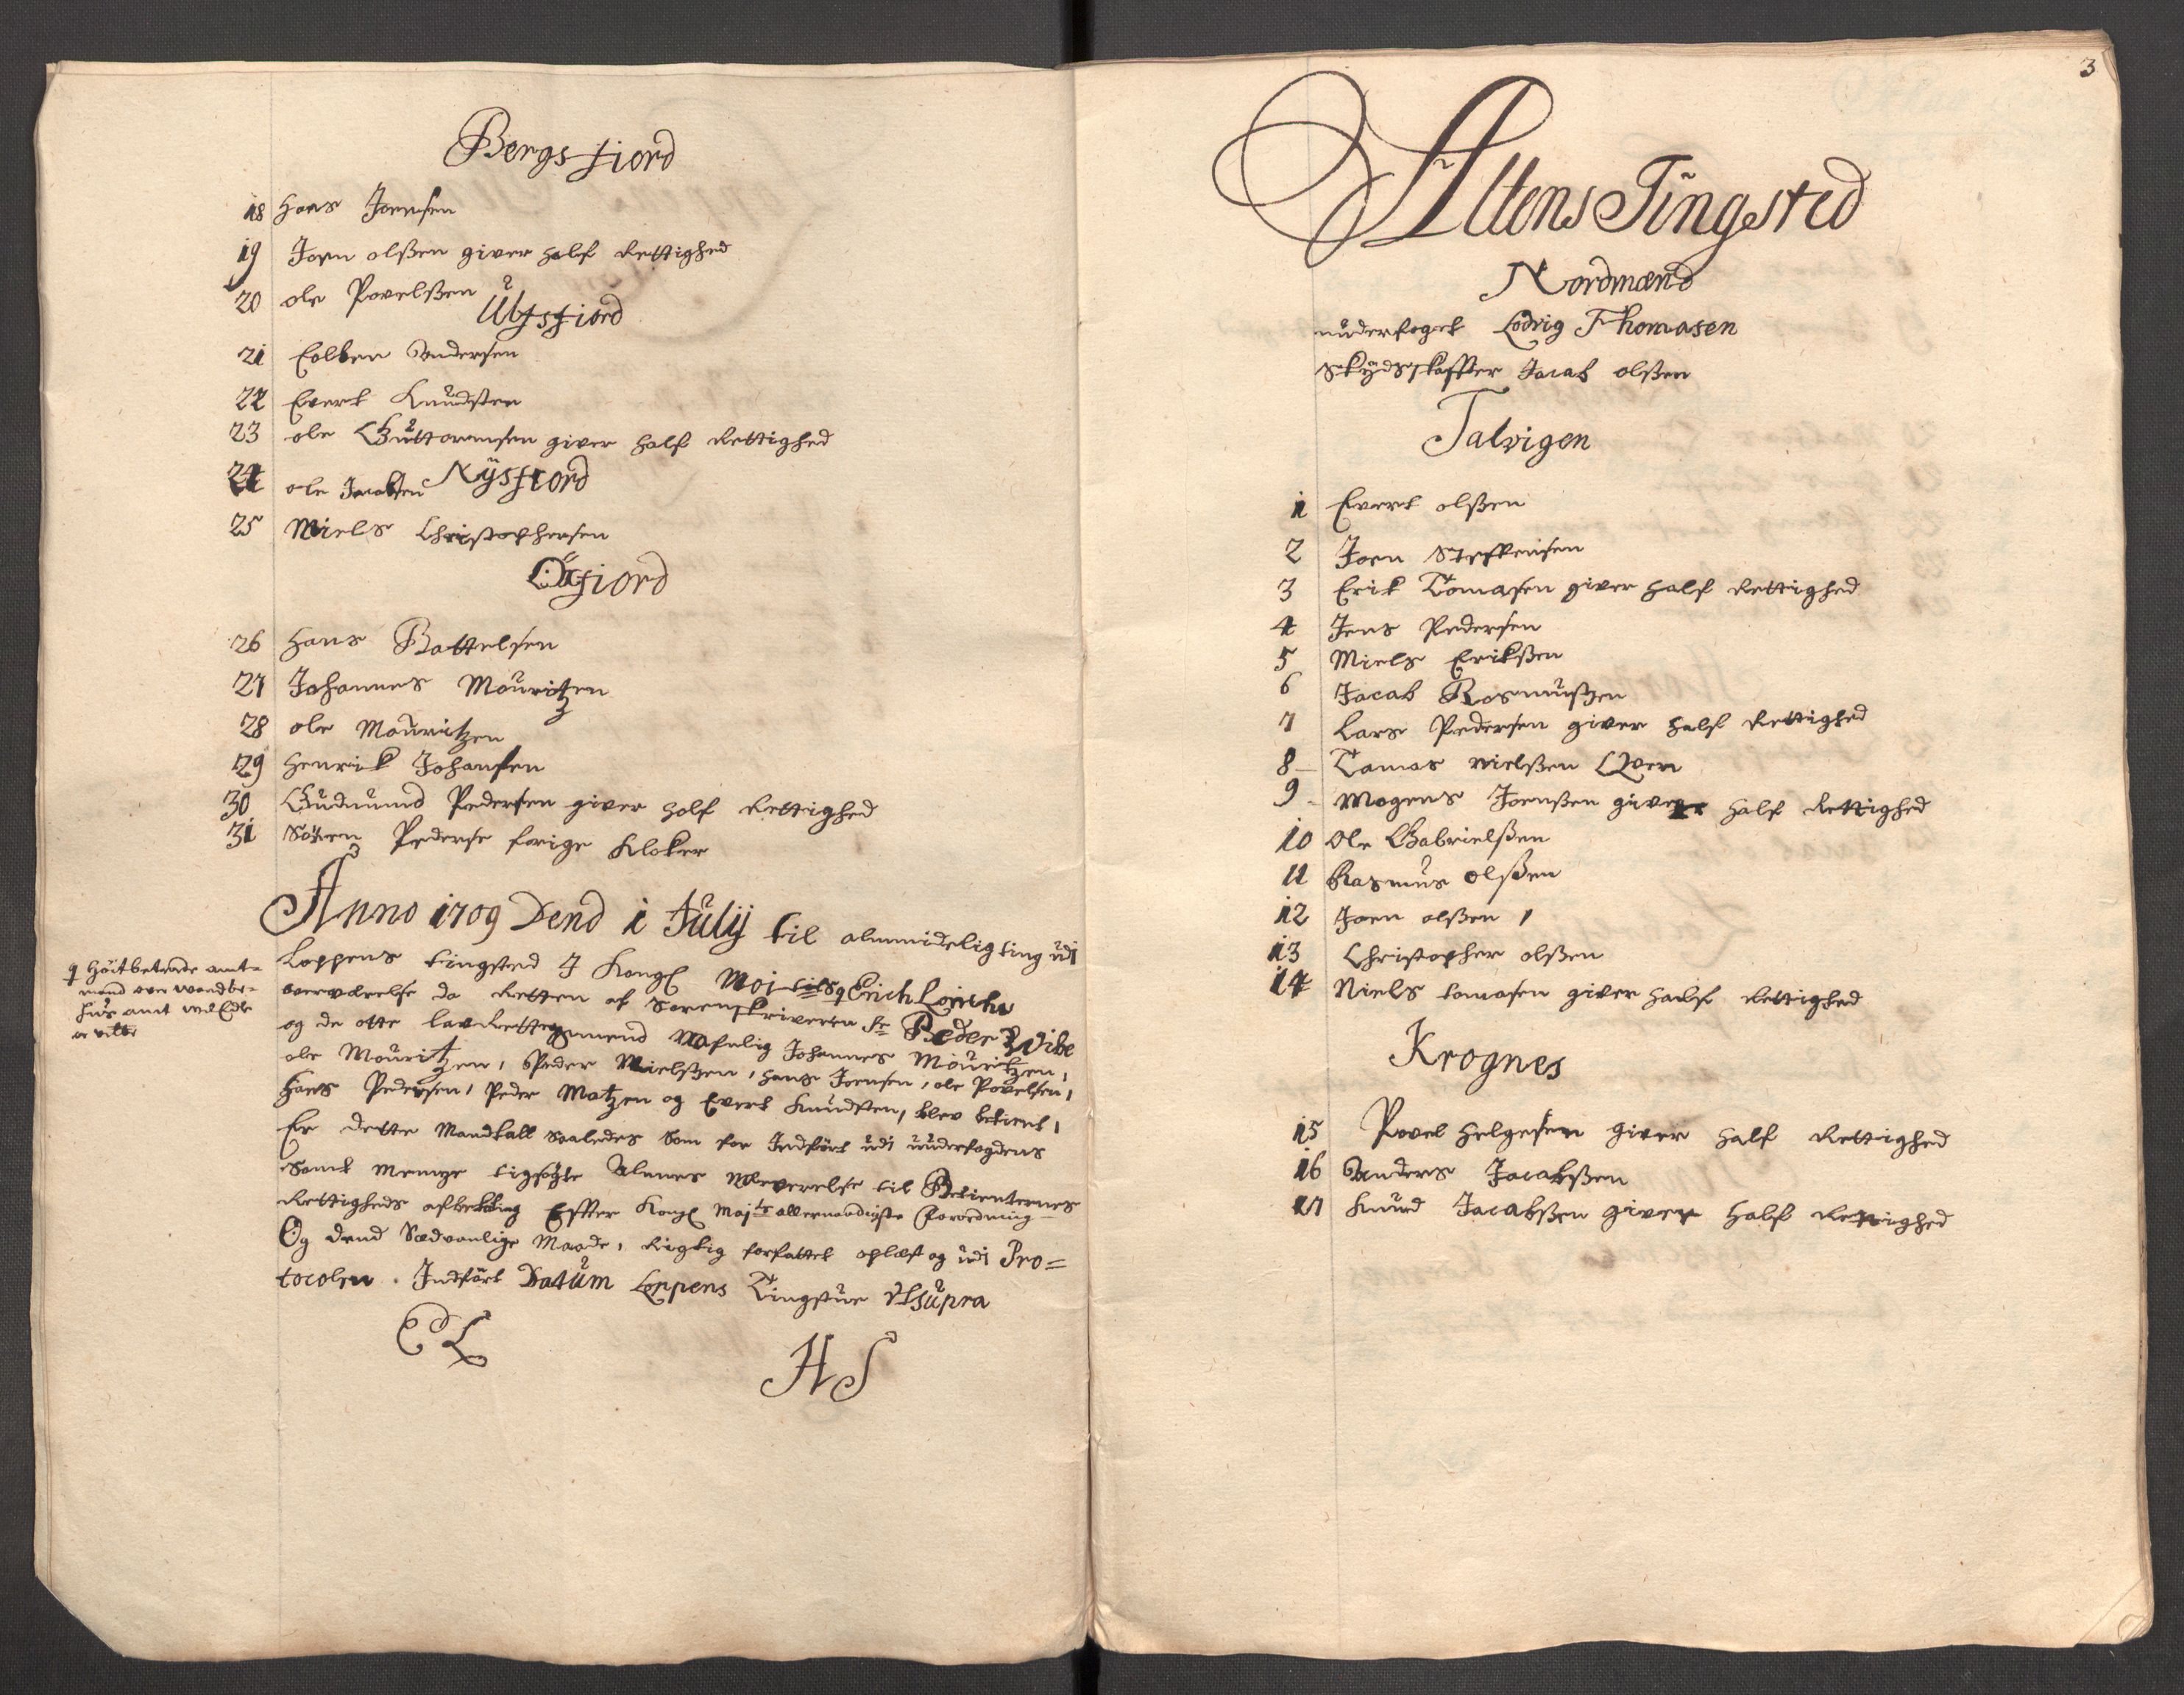 Bergsfiord
18 Hans Joensen
19 Joen olßen giver half Rettighed
20 ole Povelßen
Ulfsfiord
21 Colben Andersen
22 Evert Knudsten
23 ole Guttormsen giver half Rettighed
24 ole Jacobsen
Nÿsfiord
25 Niels Christophersen
Öxfiord
26 Hans Battelsen
27 Johannes Mouritzen
28 ole Mouritzen
29 Henrik Johansen
30 Gudmund Pedersen giver half Rettighed
31 Sören Pederse forige Kloker
Anno 1709 Dend 1 Julij til almindelig ting udi
Loppens tingsted J Kongl Maj tils q Erich Lorch
overværelse da Retten af Sorenskriveren Sr Peder Wibe
og de otte lavRettesmend Nafnlig Johannes Mouritzen,
ole Mouritzen, Peder Nielsen, Hans Joensen, ole Povelsen,
Hans Pedersen, Peder Matzen og Evert Knudsen, blev betient,
Er dette Mandtall saaledes Som for Indfört udi underfogdens
Samt Menige tigsögte Almues Nerverelse til Betienternes
Rettigheds aftrekking Effter Kongl Majts allernaadigste Forordning
Og dend Sædvanlige Maade, Rigtig forfattet oplæst og udi Pro=
tocolen Indfört Datum Loppens Tingstue Utsupra
q Höitbetrode amt=
mand over Wardhe=
huus amt vel Edle
EL
HS
3
Altens Tingsted
Nordmænd
underfoget Lodvig Thomasen
Skÿdsskaffer Jacob olßen
Talvigen
1 Evert olßen
2 Joen Steffensen
3 Erik Tomasen giver half Rettighed
4 Jens Pedersen
5 Niels Erikßen
6 Jacob Rasmusßen
7 Lars Pedersen giver half Rettighed
8 Tamas nielßen Qven
9 Mogens Joenßen giver half Rettighed
10 Ole Gabrielßen
11 Rasmus olßen
12 Joen olßen
13 Christopher olßen
14 Niels tomasen giver half Rettighed
Krognes
15 Povel Helgesen giver half Rettighed
16 Anders Jacobßen
17 Knud Jacobßen giver half Rettighed